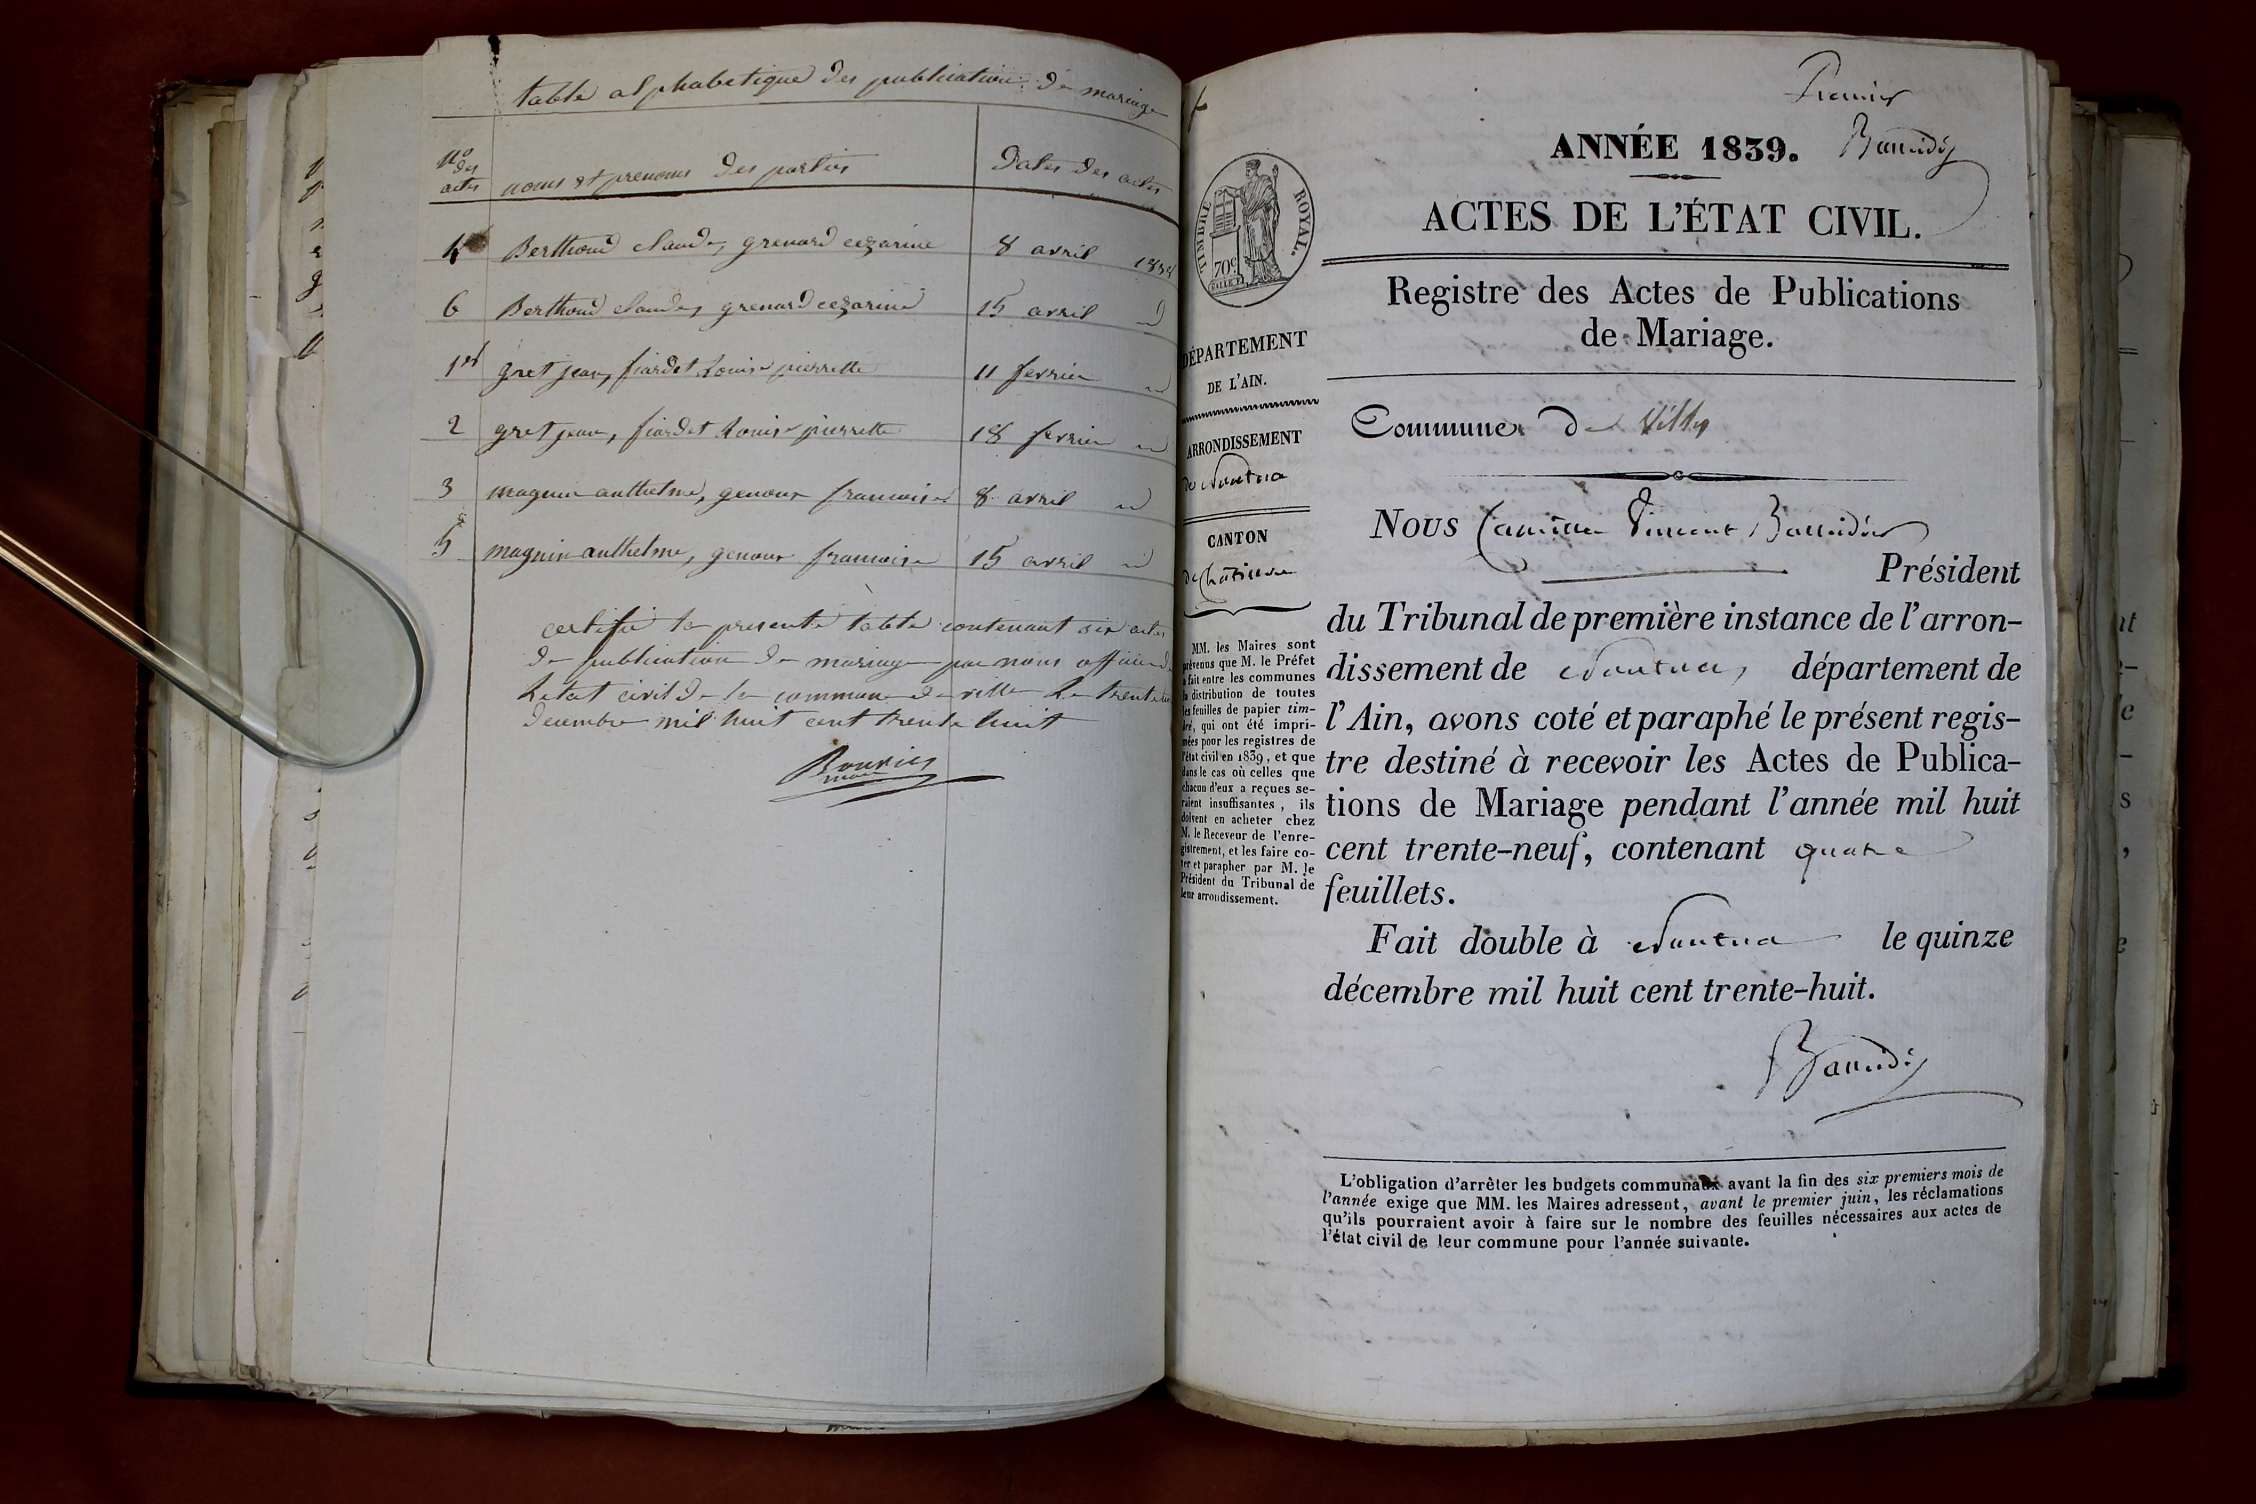 table alphabetique des publication de mariage
Nos des actes
noms et prenoms des parties
Dates des actes
4 Berthoud claude, grenard cezarine 8 avril 1838
6 Berthoud claude, grenard cezarine 15 avril id
1er gret jean, fiardet Louise pierrette 11 fevrier id
2 gret jean, fiardet Louise pierrette 18 fevrier id
3 magnin anthelme, genoux francoise 8 avril id
5 magnin anthelme, genoux francoise 15 avril id
certifié la presente table contenant six actes
de publication de mariage par nous officier de
Letat civil de la commune de ville Le trente un
decembre mil huit cent trente huit
maire
Premier
ANNÉE 1839.
ACTES DE L'ÉTAT CIVIL.
Registre des Actes de Publications
de Mariage.
TIMBRE ROYAL.
70c
DÉPARTEMENT
DE L'AIN.
ARRONDISSEMENT
de Nantua
CANTON
de Chatillon
MM. les Maires sont
prévenus que M. le Préfet
a fait entre les communes
la distribution de toutes
les feuilles de papier tim-
bré, qui ont été impri-
mées pour les registres de
l'état civil en 1839, et que
dans le cas où celles que
chacun d'eux a reçues se-
raient insuffisantes, ils
doivent en acheter chez
M. le Receveur de l'enre-
gistrement, et les faire co-
ter et parapher par M. le
Président du Tribunal de
leur arrondissement.
Commune de Villes
Nous Camille Vincent
Président
du Tribunal de première instance de l'arron-
dissement de Nantua, département de
l'Ain, avons coté et paraphé le présent regis-
tre destiné à recevoir les Actes de Publica-
tions de Mariage pendant l'année mil huit
cent trente-neuf, contenant quatre
feuillets.
Fait double à Nantua le quinze
décembre mil huit cent trente-huit.
L'obligation d'arrêter les budgets communaux avant la fin des six premiers mois de
l'année exige que MM. les Maires adressent, avant le premier juin, les réclamations
qu'ils pourraient avoir à faire sur le nombre des feuilles nécessaires aux actes de
l'état civil de leur commune pour l'année suivante.